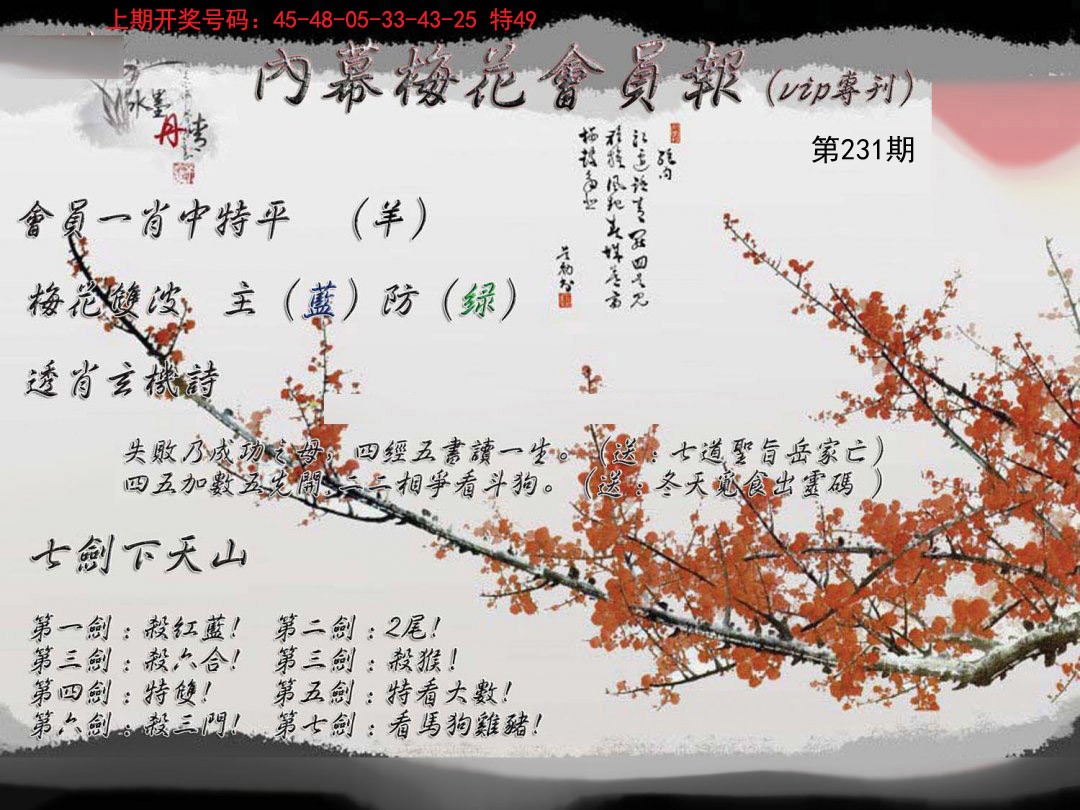 上期开奖号码：45-48-05-33-43-25 特49
內幕梅花會員報（vip專刊）
水墨
丹青
第231期
會員一肖中特平 （羊）
梅花雙波 主（藍）防（绿）
透肖玄機詩
失敗乃成功之母；四經五書讀一生。（送：七道聖旨岳家亡）
四五加數五先開，二二相爭看斗狗。（送：冬天覓食出靈碼 ）
七劍下天山
第一劍：殺红藍！ 第二劍：2尾！
第三劍：殺六合！ 第三劍：殺猴！
第四劍：特雙！ 第五劍：特看大數！
第六劍：殺三門！ 第七劍：看馬狗雞豬！